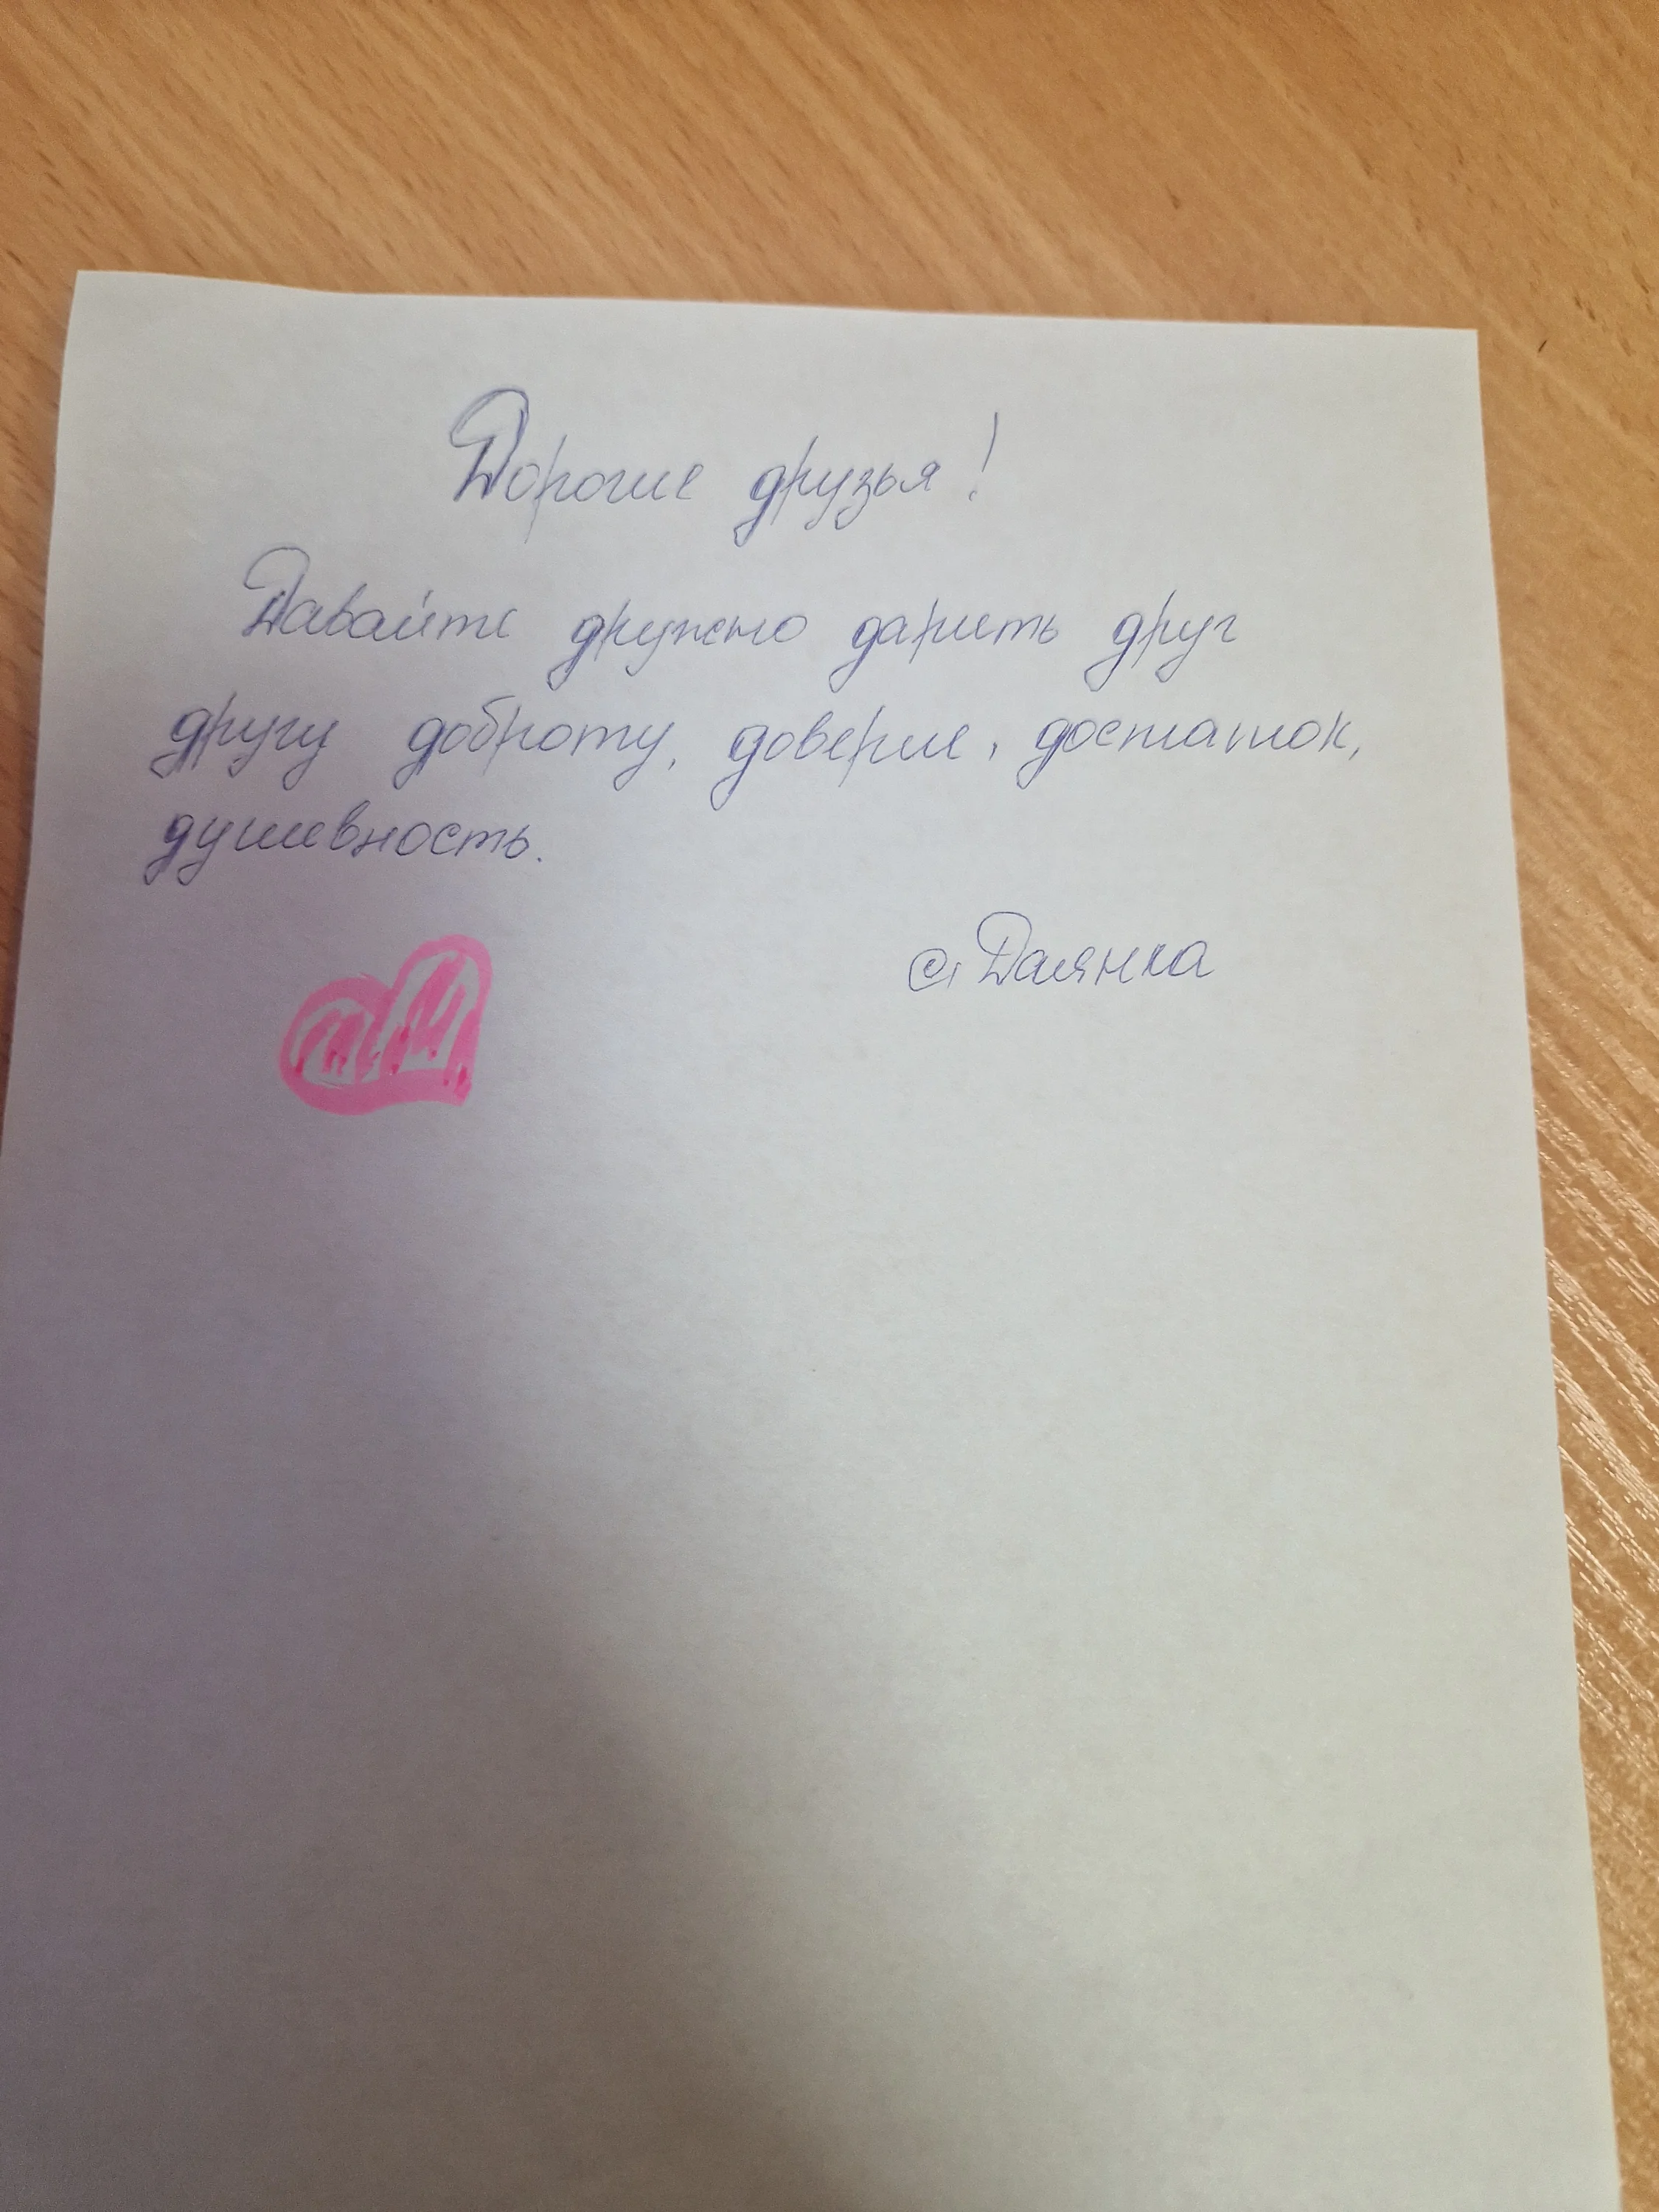 Дорогие друзья!
Давайте дружно дарить друг
другу доброту, доверие, достаток,
душевность.
© Даянка